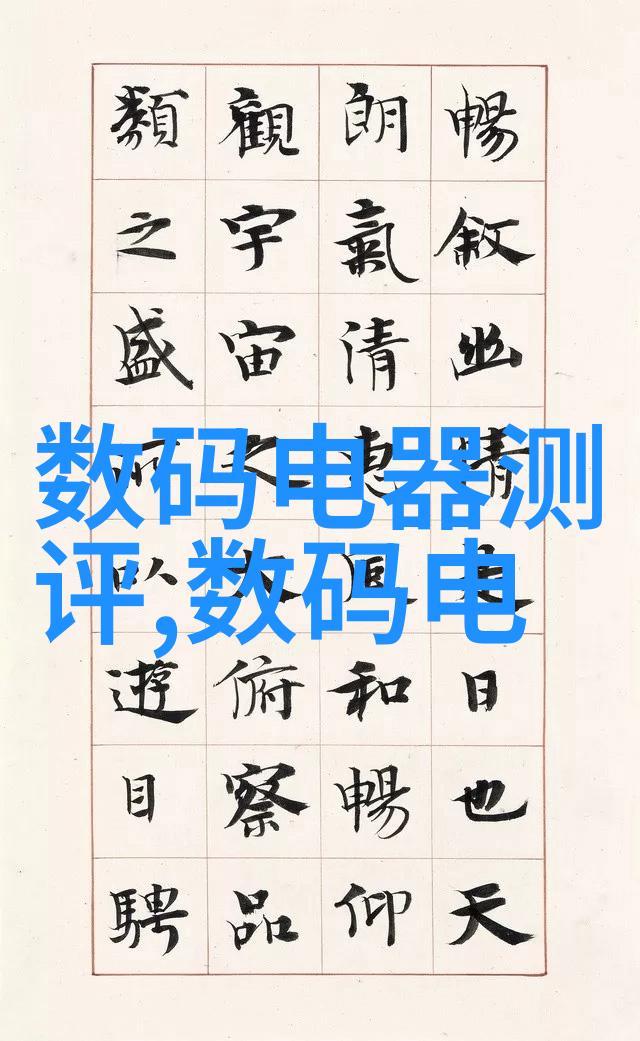 暢敘幽情是日也天
朗氣清惠風和暢仰
觀宇宙之大俯察品
類之盛所以遊目騁
数码电器测
评,数码电